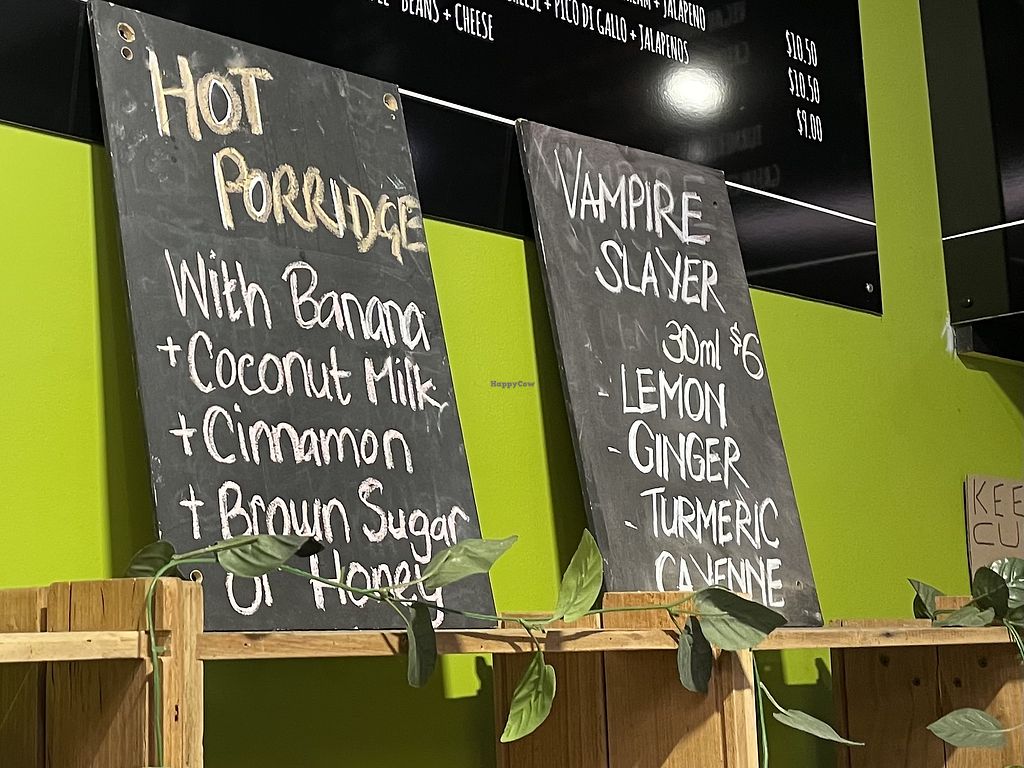 + JALAPENO
+ PICO DI GALLO + JALAPENOS
BEANS + CHEESE
$10.50
$10.50
$9.00
HOT
PORRIDGE
With Banana
+ Coconut Milk
+ Cinnamon
+ Brown Sugar
or Honey
VAMPIRE
SLAYER
30ml $6
- LEMON
- GINGER
- TURMERIC
CAYENNE
HappyCow
KEE
CU